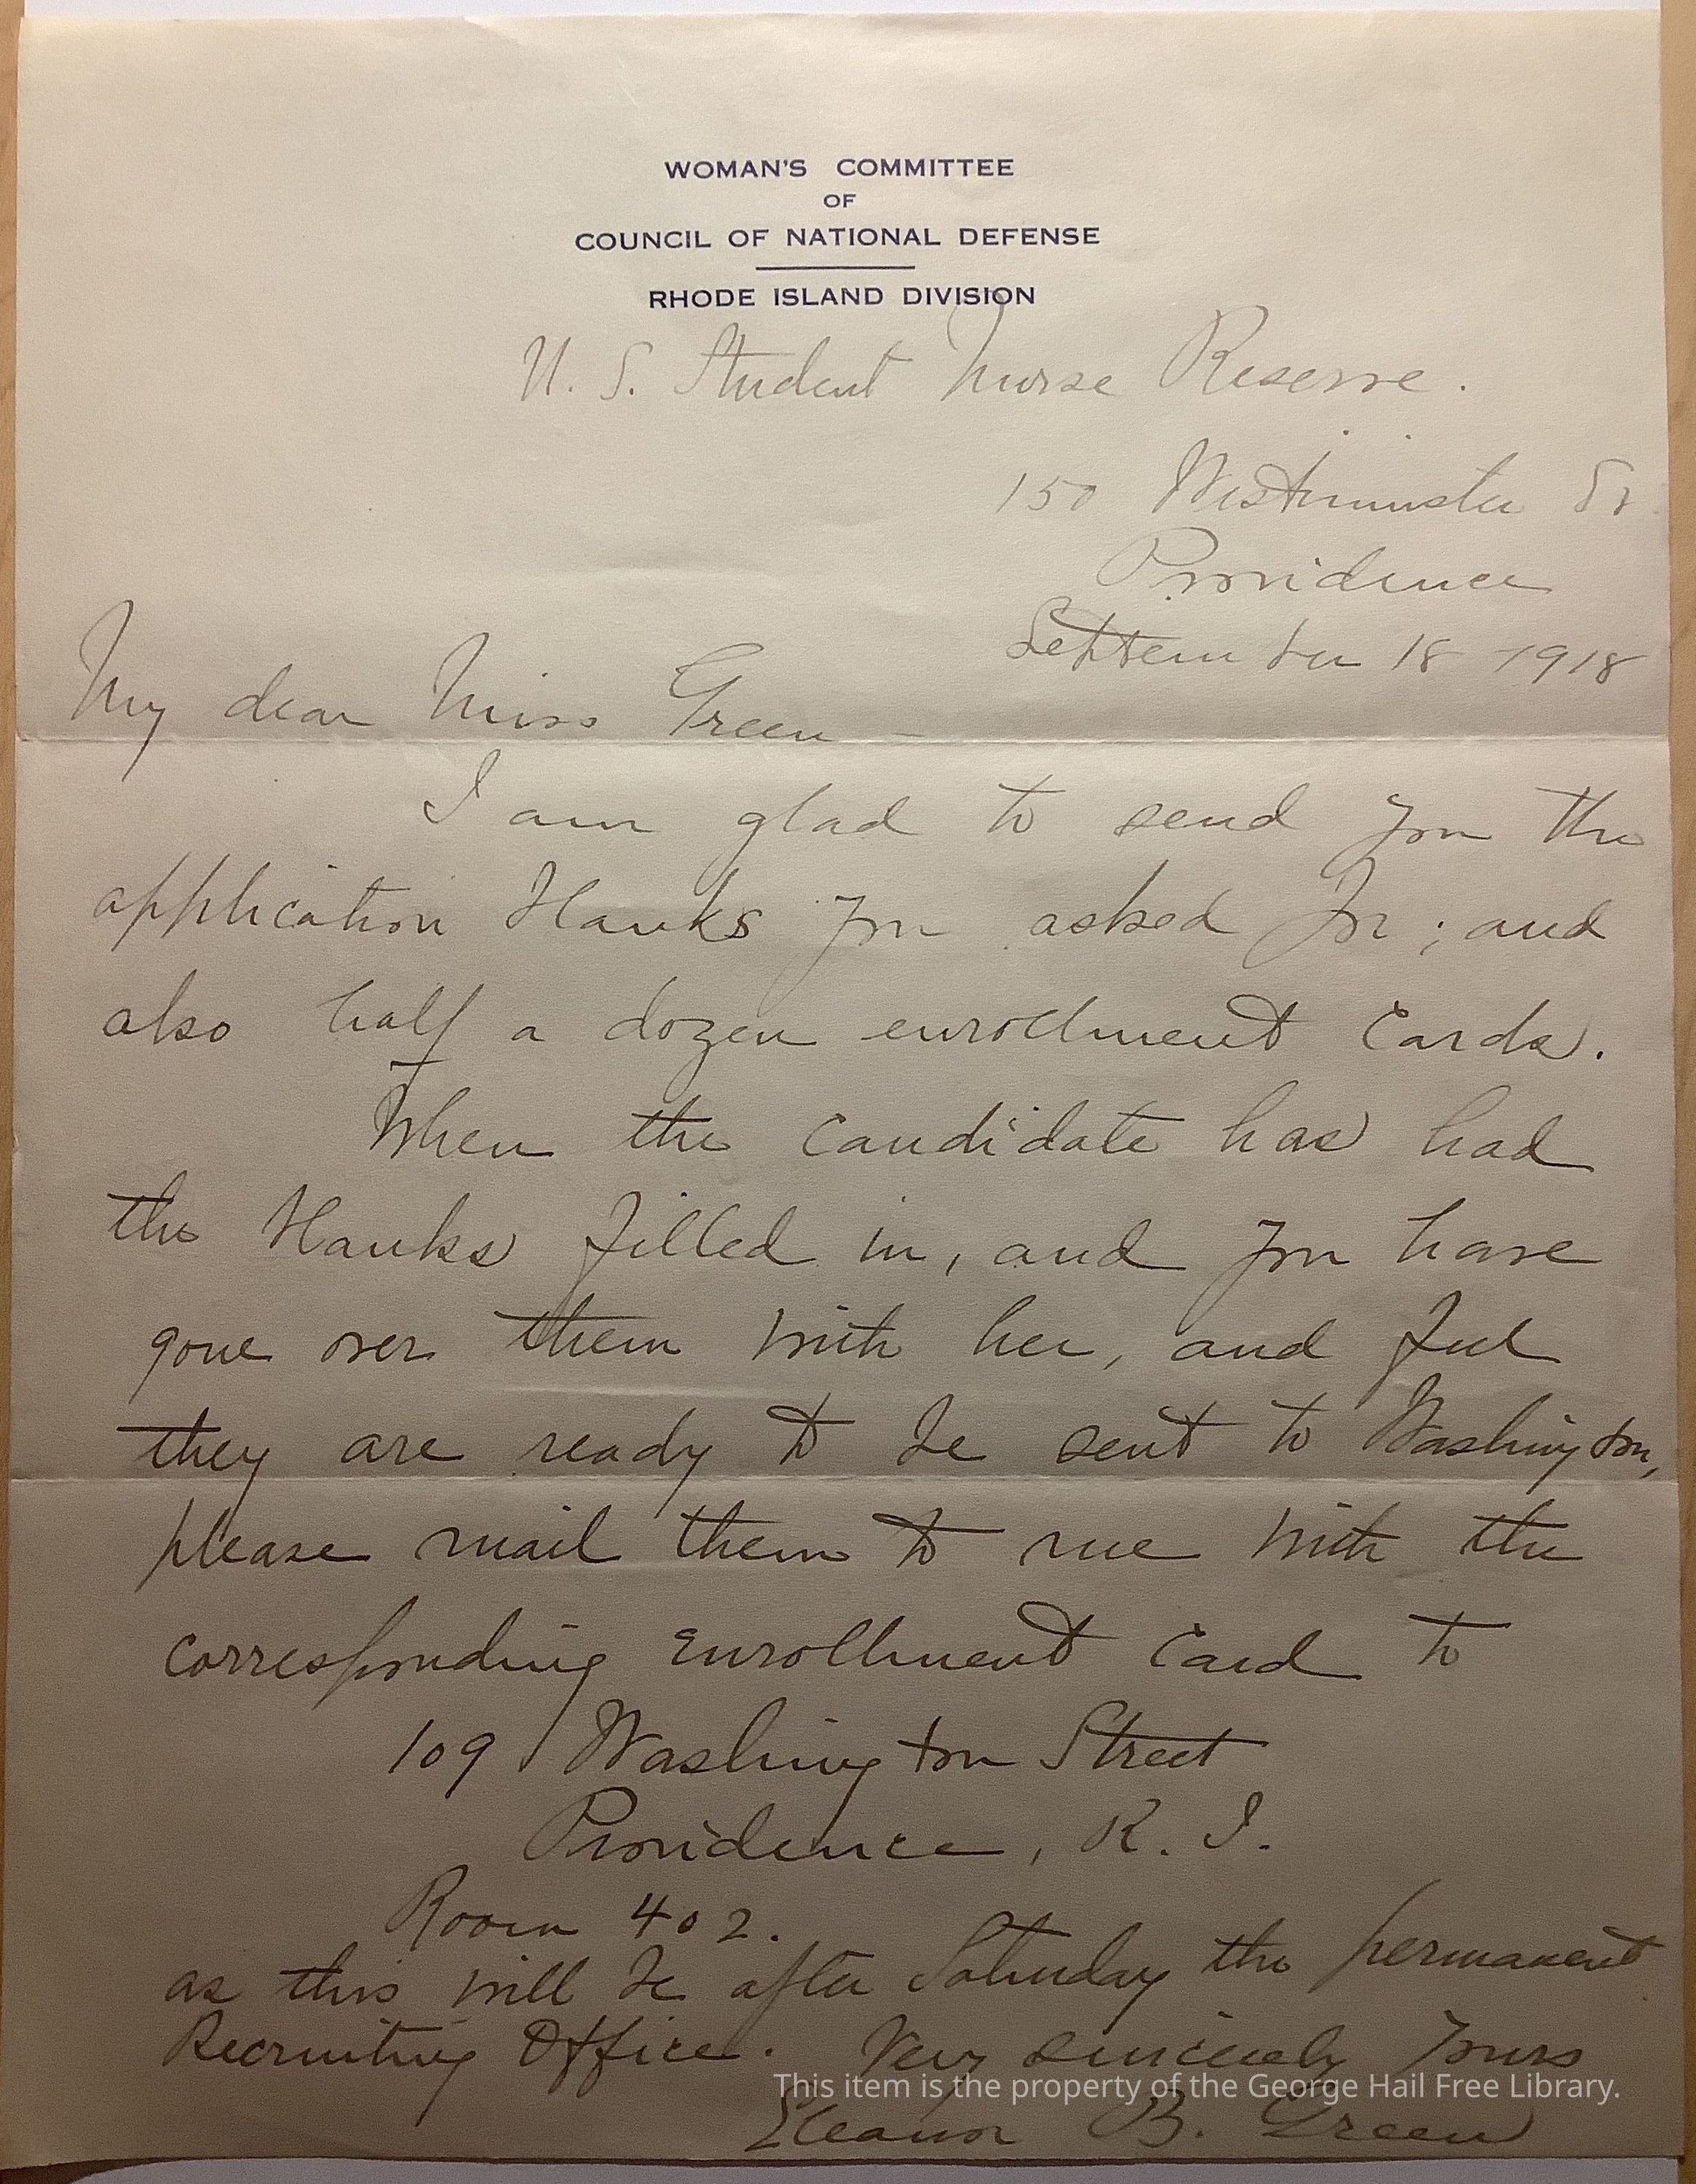 WOMAN'S COMMITTEE
OF
COUNCIL OF NATIONAL DEFENSE
RHODE ISLAND DIVISION
U. S. Student Nurse Reserve.
150 Westminster St
Providence
September 18 1918
My dear Miss Green —
I am glad to send you the
application blanks you asked for; and
also half a dozen enrollment cards.
When the candidate has had
the blanks filled in, and you have
gone over them with her, and feel
they are ready to be sent to Washington,
please mail them to me with the
corresponding enrollment card to
109 Washington Street
Providence, R. I.
Room 402.
as this will be after Saturday the permanent
Recruiting Office. Very sincerely yours
This item is the property of the George Hail Free Library.
Eleanor B. Green